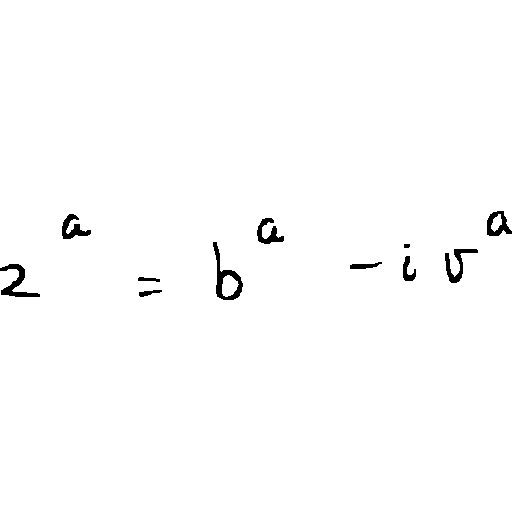 z^a = b^a - i v^a